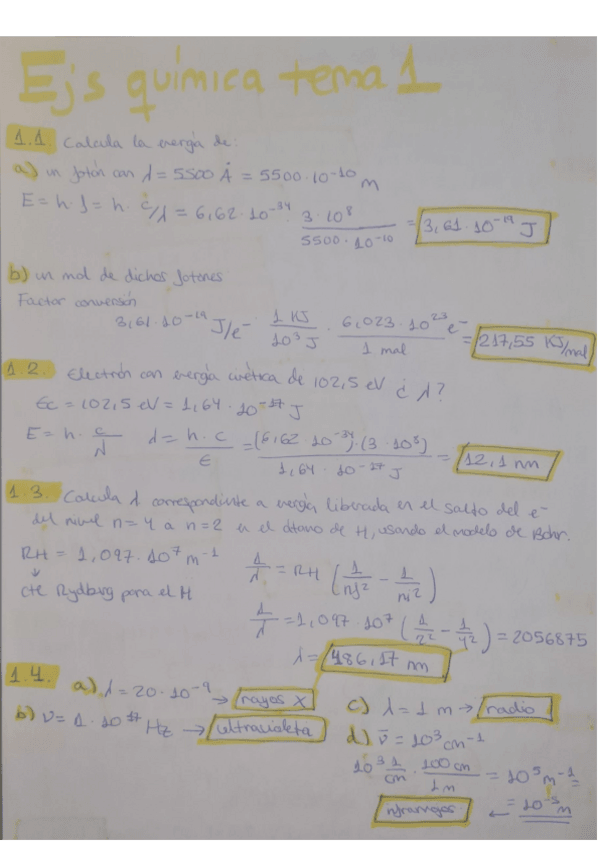 Ejs química tema 1
1.1. Calcula la energía de:
a) un fotón con λ = 5500 Å = 5500·10⁻¹⁰ m
E = h·f = h· c/λ = 6,62·10⁻³⁴· 3·10⁸ / 5500·10⁻¹⁰ = 3,61·10⁻¹⁹ J
b) un mol de dichos fotones
Factor conversión
3,61·10⁻¹⁹ J/e⁻ · 1 KJ / 10³ J · 6,023·10²³ e⁻ / 1 mol = 217,55 KJ/mol
1.2. Electrón con energía cinética de 102,5 eV ¿ λ?
Ec = 102,5 eV = 1,64·10⁻¹⁷ J
E = h· c/λ λ = h·c / E = (6,62·10⁻³⁴)·(3·10⁸) / 1,64·10⁻¹⁷ J = 12,1 nm
1.3. Calcula λ correspondiente a energía liberada en el salto del e⁻
del nivel n=4 a n=2 en el átomo de H, usando el modelo de Bohr.
RH = 1,097·10⁷ m⁻¹ 1/λ = RH (1/nf² - 1/ni²)
↓
cte Rydberg para el H
1/λ = 1,097·10⁷ (1/2² - 1/4²) = 2056875
λ = 486,17 nm
1.4. a) λ = 20·10⁻⁹ → rayos X c) λ = 1 m → radio
b) ν = 1·10¹⁷ Hz → ultravioleta d) ν̄ = 10³ cm⁻¹
10³ 1/cm · 100 cm / 1 m = 10⁵ m⁻¹ =
infrarrojos ← = 10⁻⁵ m